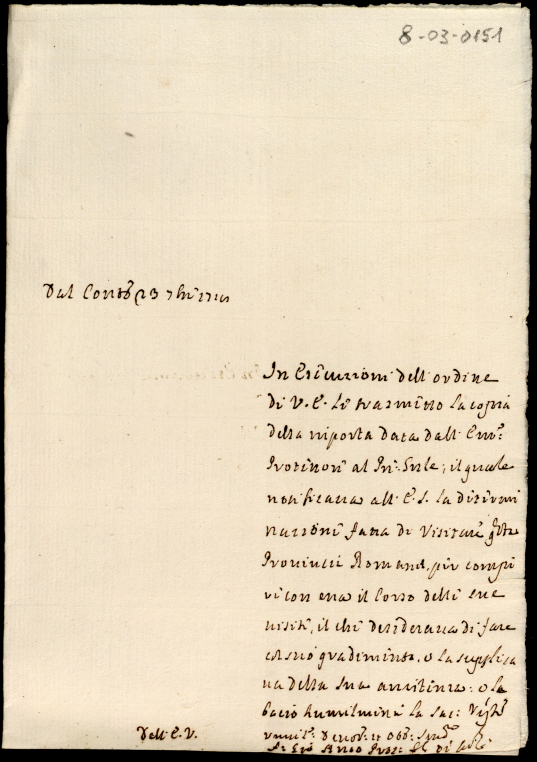 8-03-0151
Dal Conto 23 7bre
In Esecuzione dell'ordine
di V. E. le trasmetto la copia
della risposta data dall' Em.
Protettore al Gen.; il quale
notificava all' E. S. la determi
nazione fatta di visitare
Provincie Romane, per compi
re con essa il Corso delle sue
visite, il che desiderava di fare
col suo gradimento, e la supplica
va della sua assistenza: e le
bacio humilmente la Sac: Veste
Dell' E. V.
umil: devot: et obb: